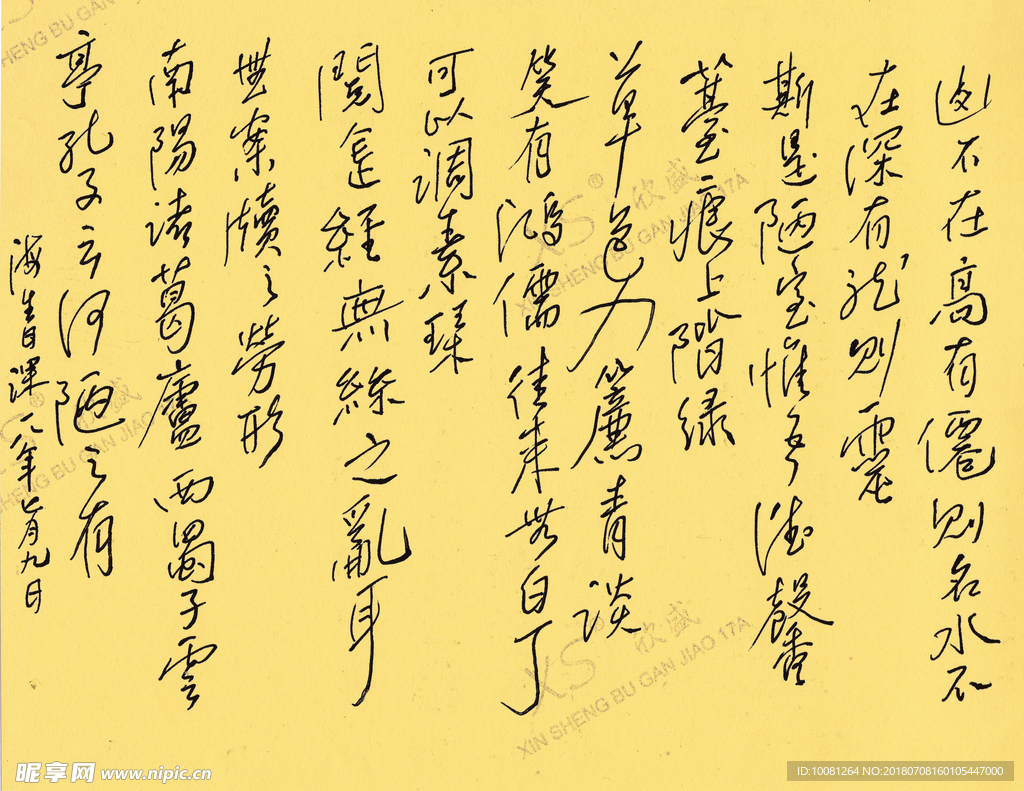 山不在高有僊則名水不
在深有龍則靈
斯是陋室惟吾德馨
薹痕上階緑
草色入簾青談
笑有鴻儒往来無白丁
可以調素琴
閱金經無絲之亂耳
無案牘之勞形
南陽諸葛廬西蜀子雲
亭孔子云何陋之有
海青日課一八年七月九日
XS® 欣盛
XIN SHENG BU GAN JIAO 17A
XS® 欣盛
XIN SHENG BU GAN JIAO 17A
昵享网 www.nipic.cn
ID:10081264 NO:20180708160105447000